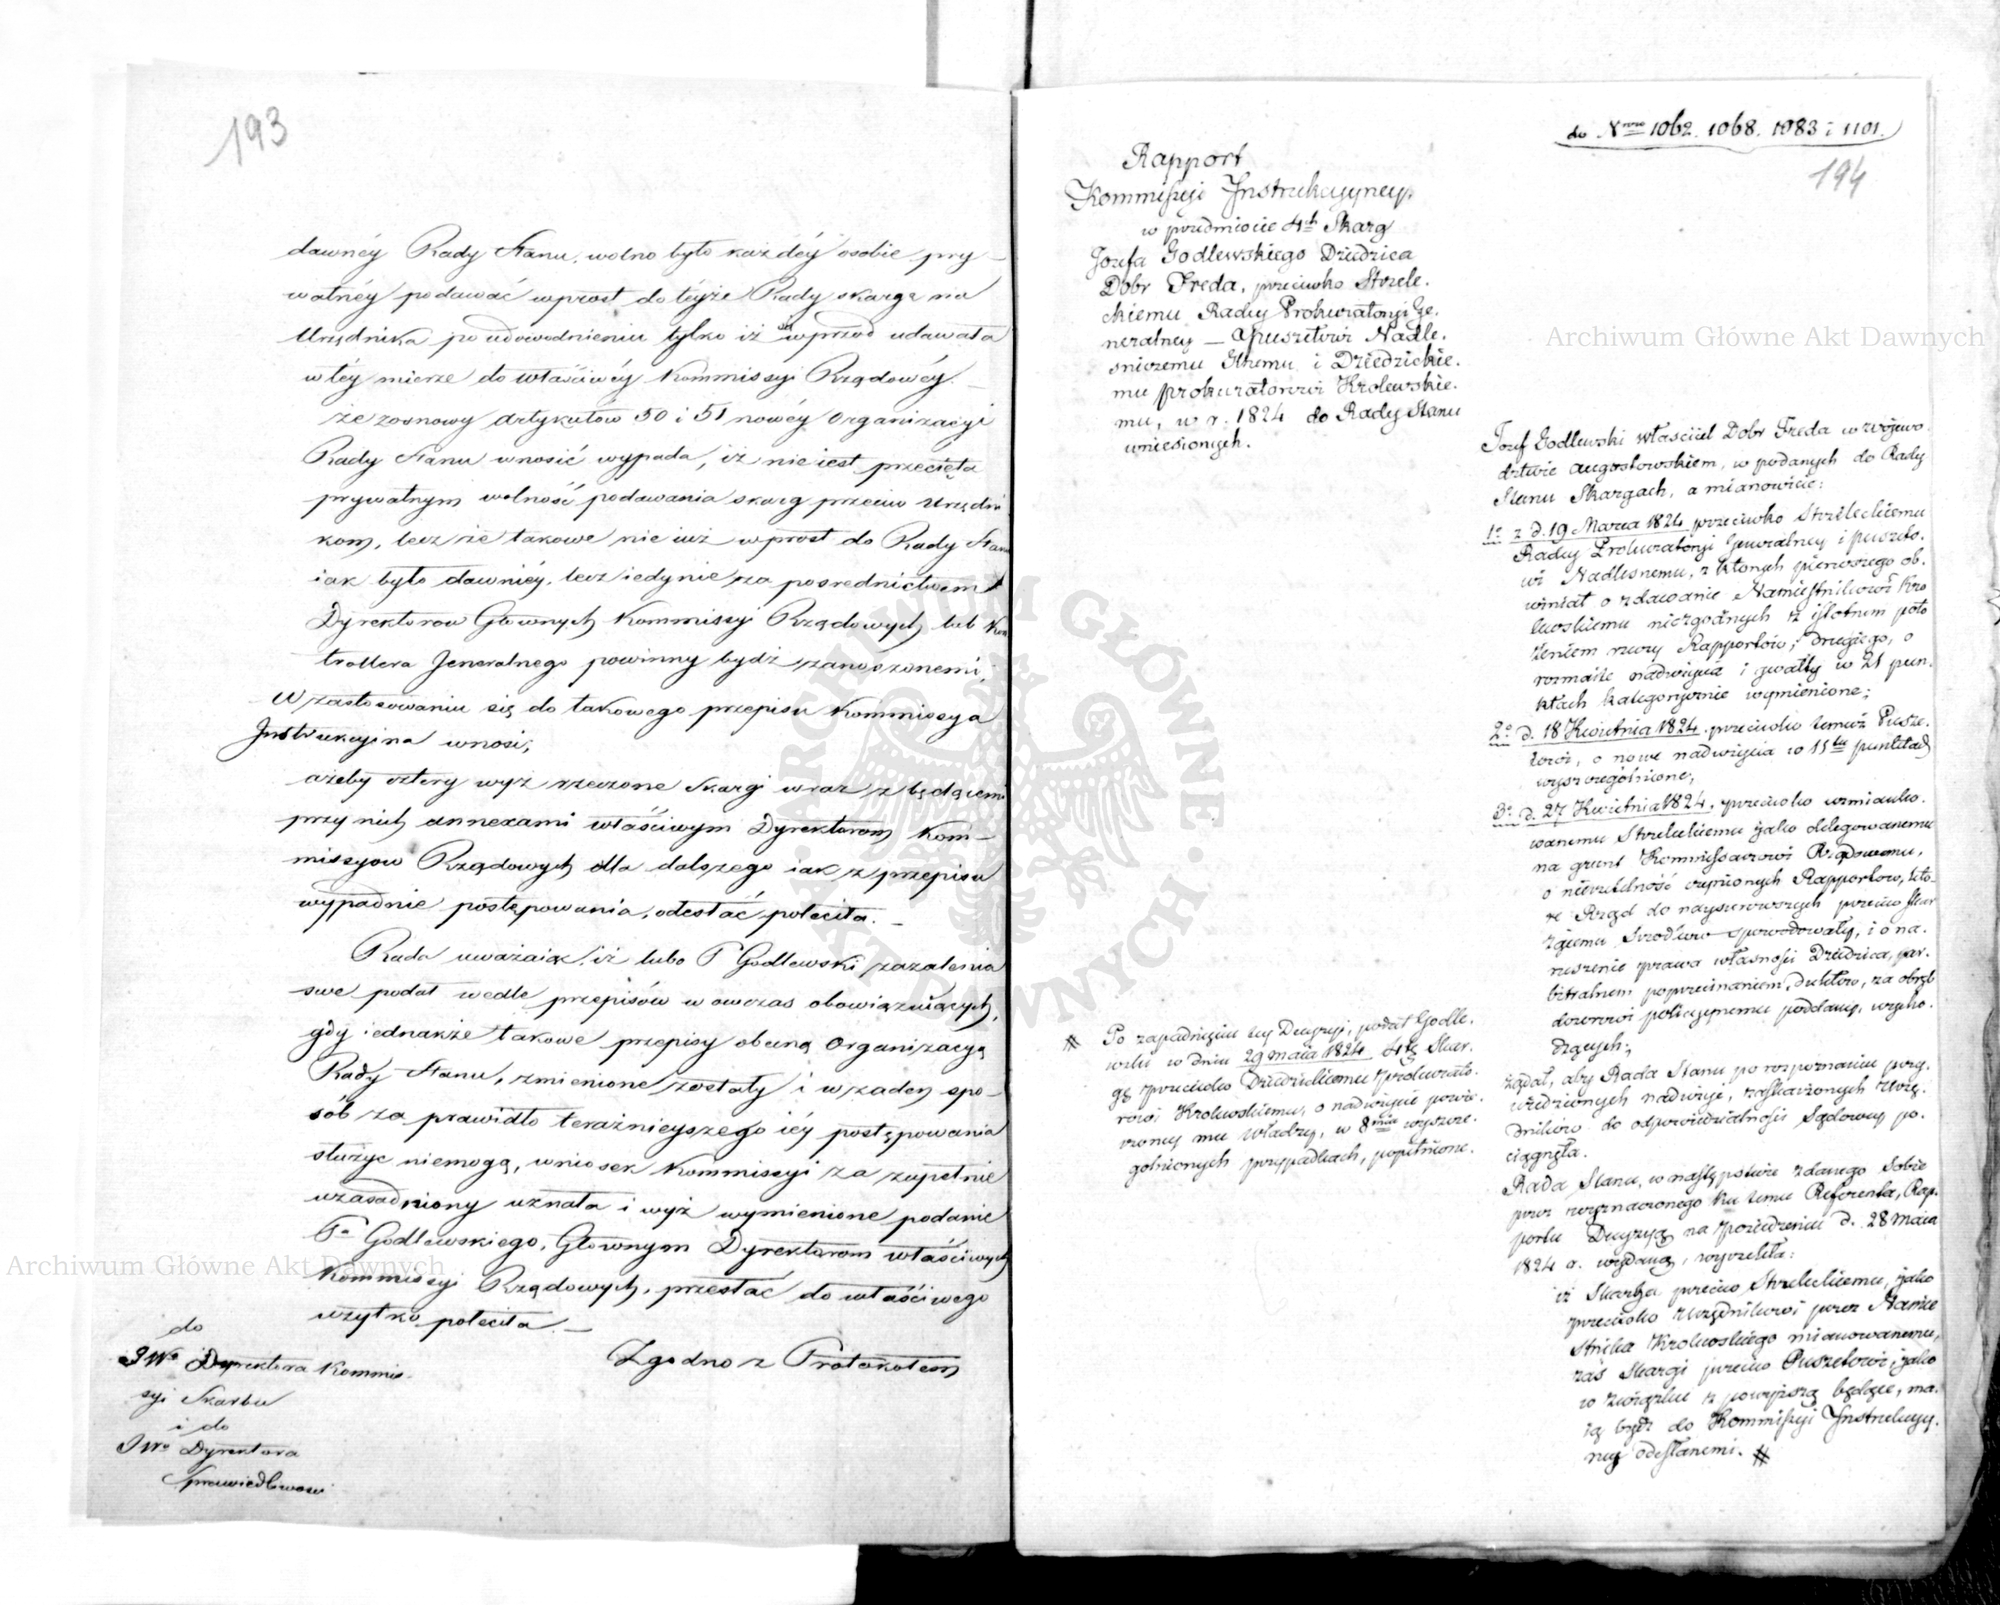 193
dawnéy Rady Stanu, wolno było każdéy osobie pry-
watnéy podawać wprost do téyże Rady skargę na
Urzędnika po udowodnieniu tylko iż się wprzód udawała
w téy mierze do właściwéy Kommissyi Rządowéy. —
że z osnowy artykułów 50 i 51 nowéy Organizacyi
Rady Stanu wnosić wypada, iż nie iest przecięta
prywatnym wolność podawania skarg przeciw Urzędni
kom, lecz że takowe nie iuż wprost do Rady Stanu
iak było dawniéy, lecz iedynie za pośrednictwem
Dyrektorów Głównych Kommissyi Rządowych lub Kon
trollera Jeneralnego powinny bydź zanoszonemi;
W zastosowaniu się do takowego przepisu Kommissya
Instrukcyina wnosi;
ażeby cztery wyż rzeczone Skargi wraz z będącemi
przy nich annexami właściwym Dyrektorom Kom-
missyów Rządowych dla dalszego iak z przepisu
wypadnie postępowania, odesłać poleciła. —
Rada uważaiąc, iż lubo P. Godlewski zażalenia
swe podał wedle przepisów wówczas obowiązuiących,
gdy iednakże takowe przepisy obecną Organizacyą
Rady Stanu, zmienione zostały i w żaden spo-
sób za prawidło teraźnieyszego iéy postępowania
służyć niemogą, wniosek Kommissyi za zupełnie
uzasadniony uznała i wyż wymienione podanie
Pa Godlewskiego, Głównym Dyrektorom właściwych
Kommissyi Rządowych, przesłać do właściwego
użytku poleciła. —
Zgodno z Protokołem
do
JWo Dyrektora Kommis-
syi Skarbu
i do
JWo Dyrektora
Sprawiedliwości
do Nrow 1062. 1068. 1083 i 1101.
194
Rapport
Kommissyi Instrukcyyney,
w przedmiocie 4ch Skarg
Jozefa Godlewskiego Dziedzica
Dobr Freda, przeciwko Strzele-
ckiemu Radcy Prokuratoryi Ge-
neralney — Puszetowi Nadle-
śniczemu Glnemu i Dziedzickie-
mu Prokuratorowi Krolewskie-
mu, w r. 1824 do Rady Stanu
wniesionych.
Jozef Godlewski właściciel Dobr Freda w wojewo-
dztwie augustowskiem, w podanych do Rady
Stanu Skargach, a mianowicie:
1o z d. 19 Marca 1824 przeciwko Strzeleckiemu
Radcy Prokuratoryi Generalney i Puszeto-
wi Nadlesnemu, z ktorych pierwszego ob-
winiał o zdawanie Namiestnikowi Kro
lewskiemu niezgodnych z istotnem poło
żeniem rzeczy Rapportów; Drugiego, o
rozmaite nadużycia i gwałty w 21 pun-
ktach kategorycznie wymienione;
2o d. 18 Kwietnia 1824. przeciwko temuż Pusze-
towi, o nowe nadużycia w 15tu punktach
wyszczególnione;
3o d. 27 Kwietnia 1824, przeciwko wzmianko-
wanemu Strzeleckiemu jako delegowanemu
na grunt Kommissarzowi Rządowemu,
o nierzetelność czynionych Rapportow, kto-
re Rząd do naysurowszych przeciw Skar
żącemu Srzodkow spowodowały, i o na-
ruszenie prawa własności Dziedzica, ar-
bitralnem poprzecinaniem, duktow, za obręb
dozorowi policyynemu poddany, wycho-
dzących;
żądał, aby Rada Stanu po rozpoznaniu wey-
wiedzionych nadużyć, zaskarżonych Urzę-
dnikow do odpowiedzialności Sądowey po-
ciągnęła.
Rada Stanu, w następstwie zdanego Sobie
przez wyznaczonego ku temu Referenta, Rap-
portu Decyzyą na posiedzeniu d. 28 Maia
1824 r. wydaną, wyrzekła:
iż Skarga przeciw Strzeleckiemu, jako
przeciwko Urzędnikowi przez Namie
stnika Krolewskiego mianowanemu,
zaś Skargi przeciw Puszetowi, jako
w związku z powyższą będące, ma-
ią bydź do Kommissyi Instrukcyy-
ney odesłanemi. #
# Po zapadnięciu tey Decyzyi, podał Godle-
wski w dniu 29 maia 1824 4tą Skar-
gę przeciwko Dziedzickiemu Prokurato-
rowi Krolewskiemu, o nadużycie powie-
rzoney mu władzy, w 8miu wyszcze-
golnionych przypadkach, popełnione.
Archiwum Główne Akt Dawnych
Archiwum Główne Akt Dawnych
ARCHIWUM GŁÓWNE AKT DAWNYCH